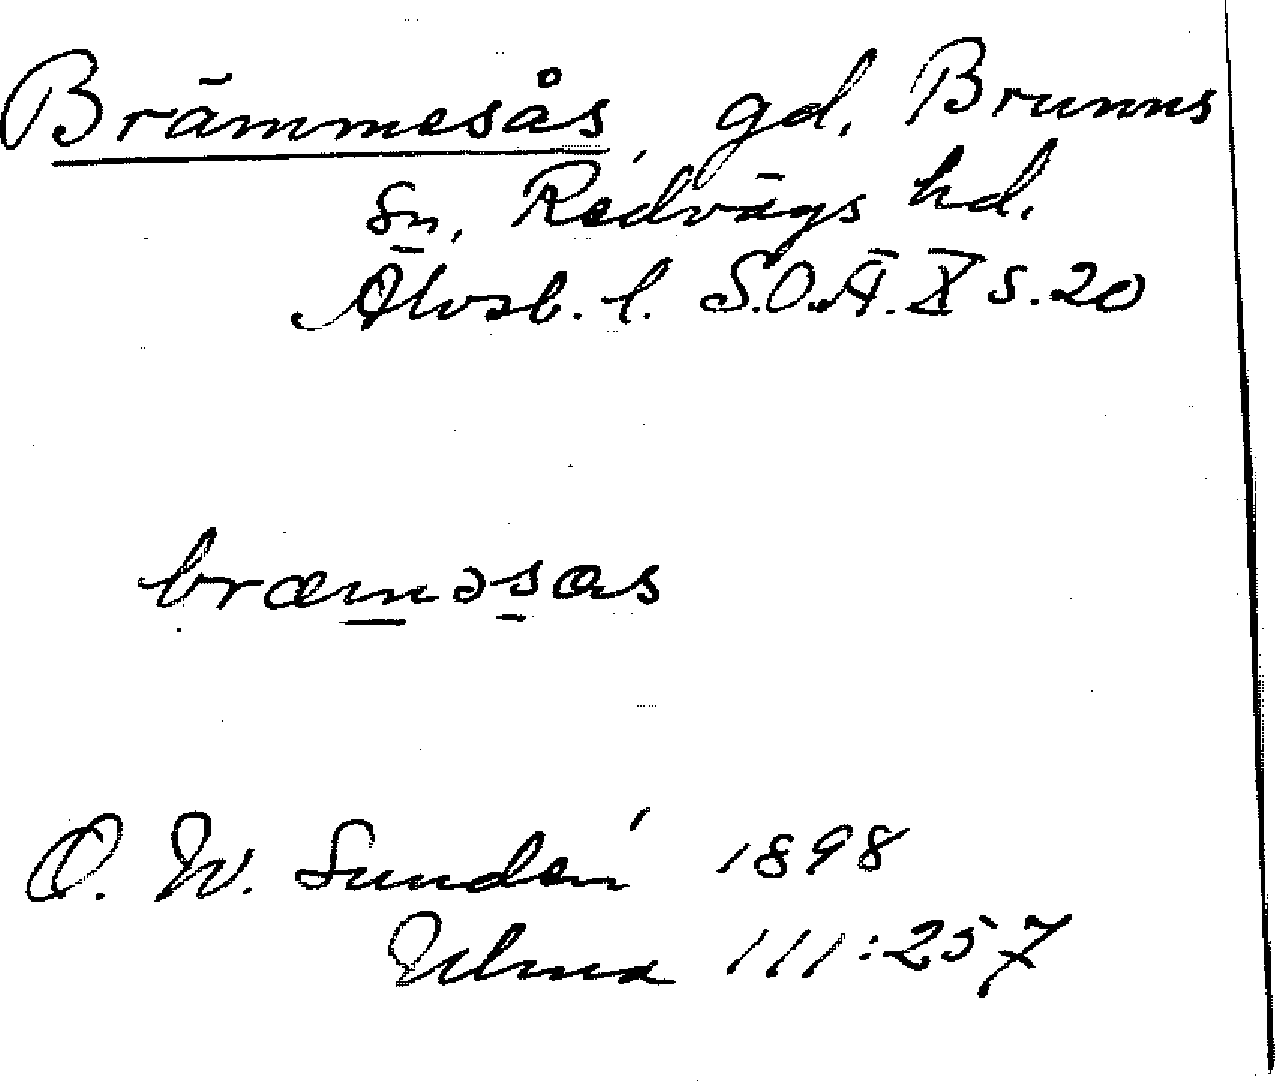 Brämmesås, gd, Brunns
sn, Redvägs hd.
Älvsb. l. S.O.Ä. X s. 20
bræm̲əs̲as
O. W. Sundén 1898
Ulma 111:257